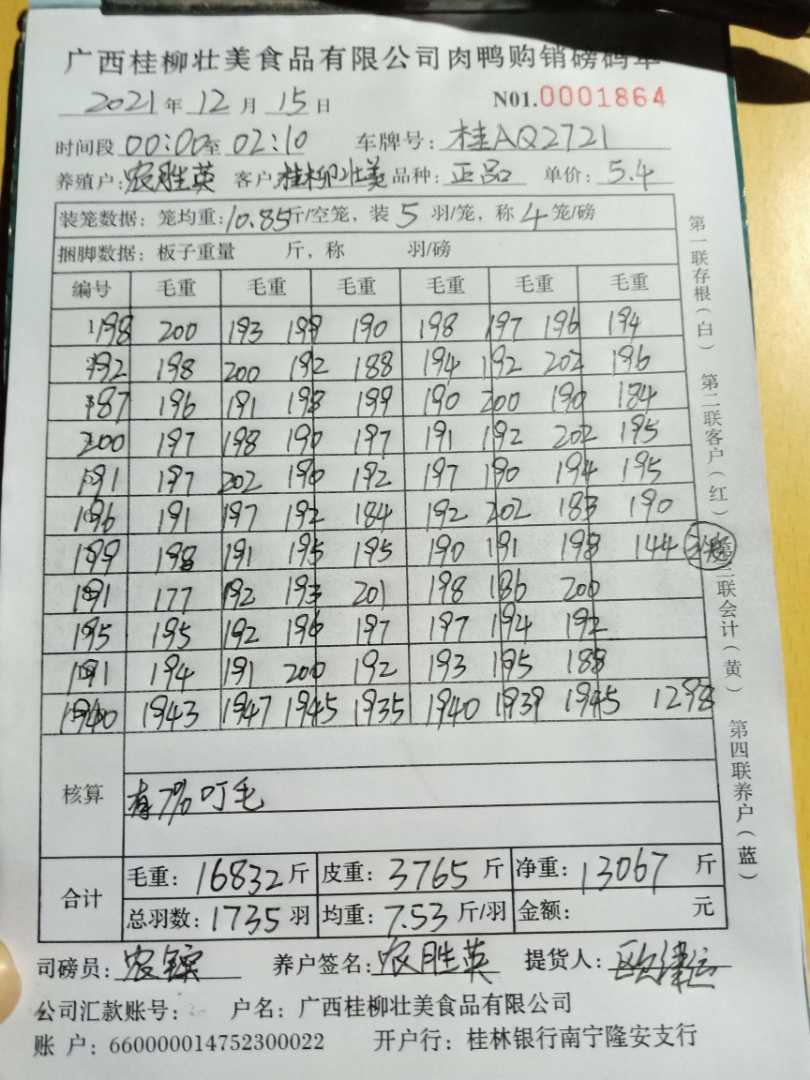 广西桂柳壮美食品有限公司肉鸭购销磅码单
2021年12月15日 N01.0001864
时间段 00:00至02:10 车牌号: 桂AQ2721
养殖户: 农胜英 客户 桂柳壮美 品种: 正品 单价: 5.4
装笼数据: 笼均重: 10.85斤/空笼, 装 5 羽/笼, 称 4 笼/磅
捆脚数据: 板子重量 斤, 称 羽/磅
编号 毛重 毛重 毛重 毛重 毛重 毛重
198 200 193 199 190 198 197 196 194
192 198 200 192 188 194 192 202 196
187 196 191 198 199 190 200 190 184
200 197 198 190 197 191 192 202 195
191 197 202 190 192 197 190 194 195
196 191 197 192 184 192 202 183 190
199 198 191 195 195 190 191 198 144
191 177 192 193 201 198 186 200
195 195 192 196 197 197 194 192
191 194 191 200 192 193 195 188
1940 1943 1947 1945 1935 1940 1939 1945 1298
核算
有7% 叮毛
合计
毛重: 16832斤 皮重: 3765斤 净重: 13067斤
总羽数: 1735羽 均重: 7.53斤/羽 金额: 元
司磅员: 农镔 养户签名: 农胜英 提货人:
公司汇款账号: 户名: 广西桂柳壮美食品有限公司
账 户: 660000014752300022 开户行: 桂林银行南宁隆安支行
第一联存根(白) 第二联客户(红) 第三联会计(黄) 第四联养户(蓝)